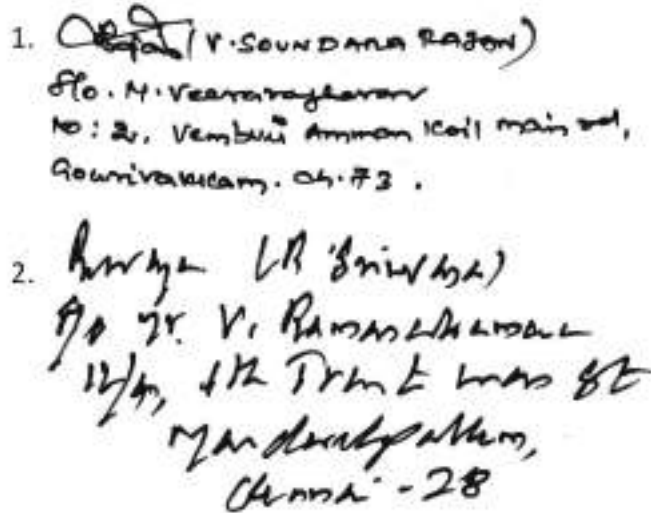 1. (V. SOUNDARA RAJAN)
S/o. M. Veeraraghavan
No: 2, Vembuli Amman Koil main rd,
Gowrivakkam. Ch. 73.
2. (R Srivatsa)
S/o Mr. V. Ramanathan
4th Trust st
Mandavelipakkam,
Chennai - 28